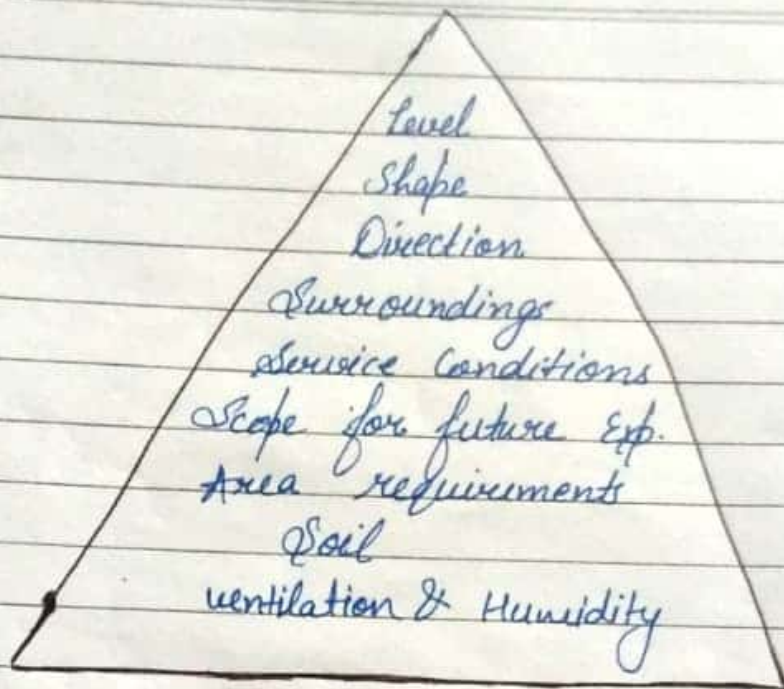 Level
Shape
Direction
Surroundings
Service Conditions
Scope for future Exp.
Area requirements
Soil
ventilation & Humidity